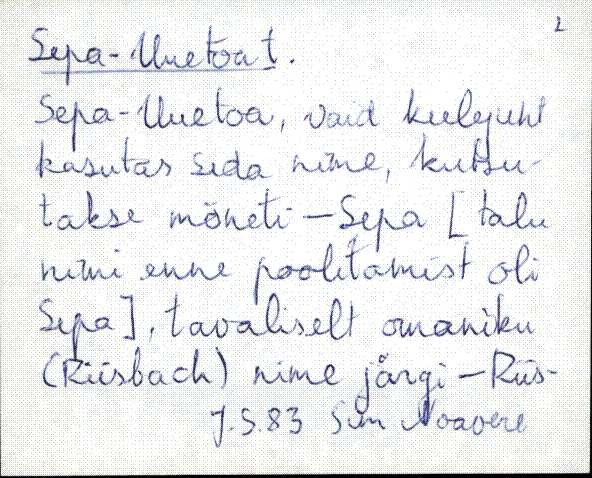 2
Sepa-Uuetoa t.
Sepa-Uuetoa, vaid keelejuht
kasutas seda nime, kutsu-
takse mõneti – Sepa [talu
nimi enne poolitamist oli
Sepa], tavaliselt omaniku
(Riisbach) nime järgi – Riis-
J.S.83 Sim